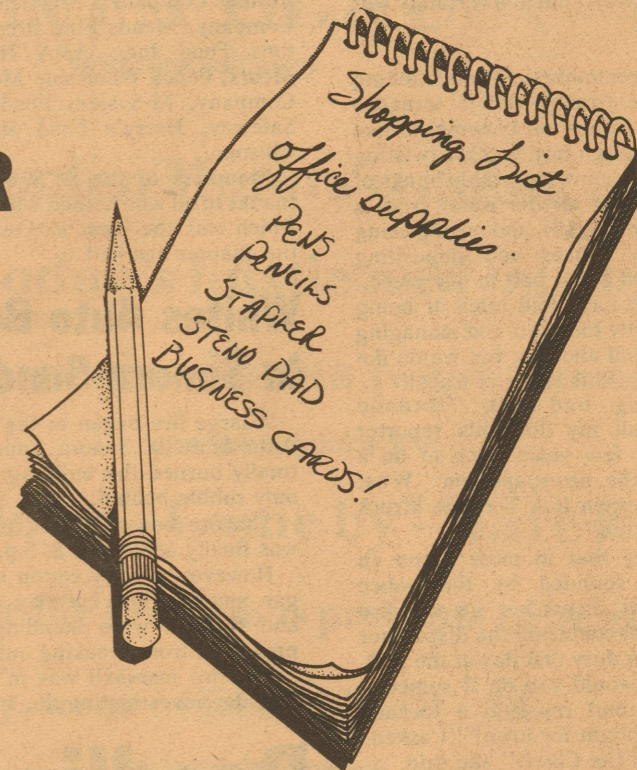 R
Shopping List
office supplies:
PENS
PENCILS
STAPLER
STENO PAD
BUSINESS CARDS!